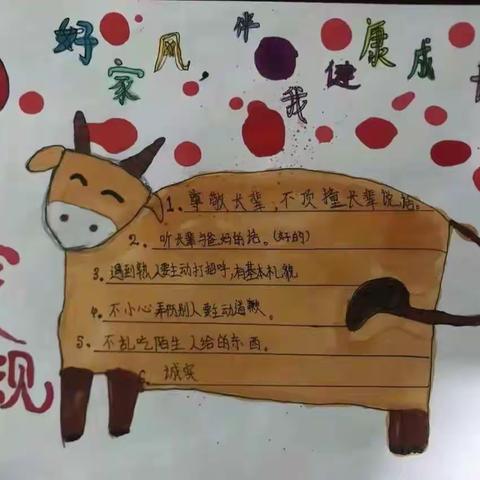 好家风，伴我健康成长
家规
1、尊敬长辈，不顶撞长辈说话。
2、听长辈与爸妈的话。(好的)
3、遇到熟人要主动打招呼，有基本礼貌
4、不小心弄伤别人要主动道歉。
5、不乱吃陌生人给的东西。
6、诚实